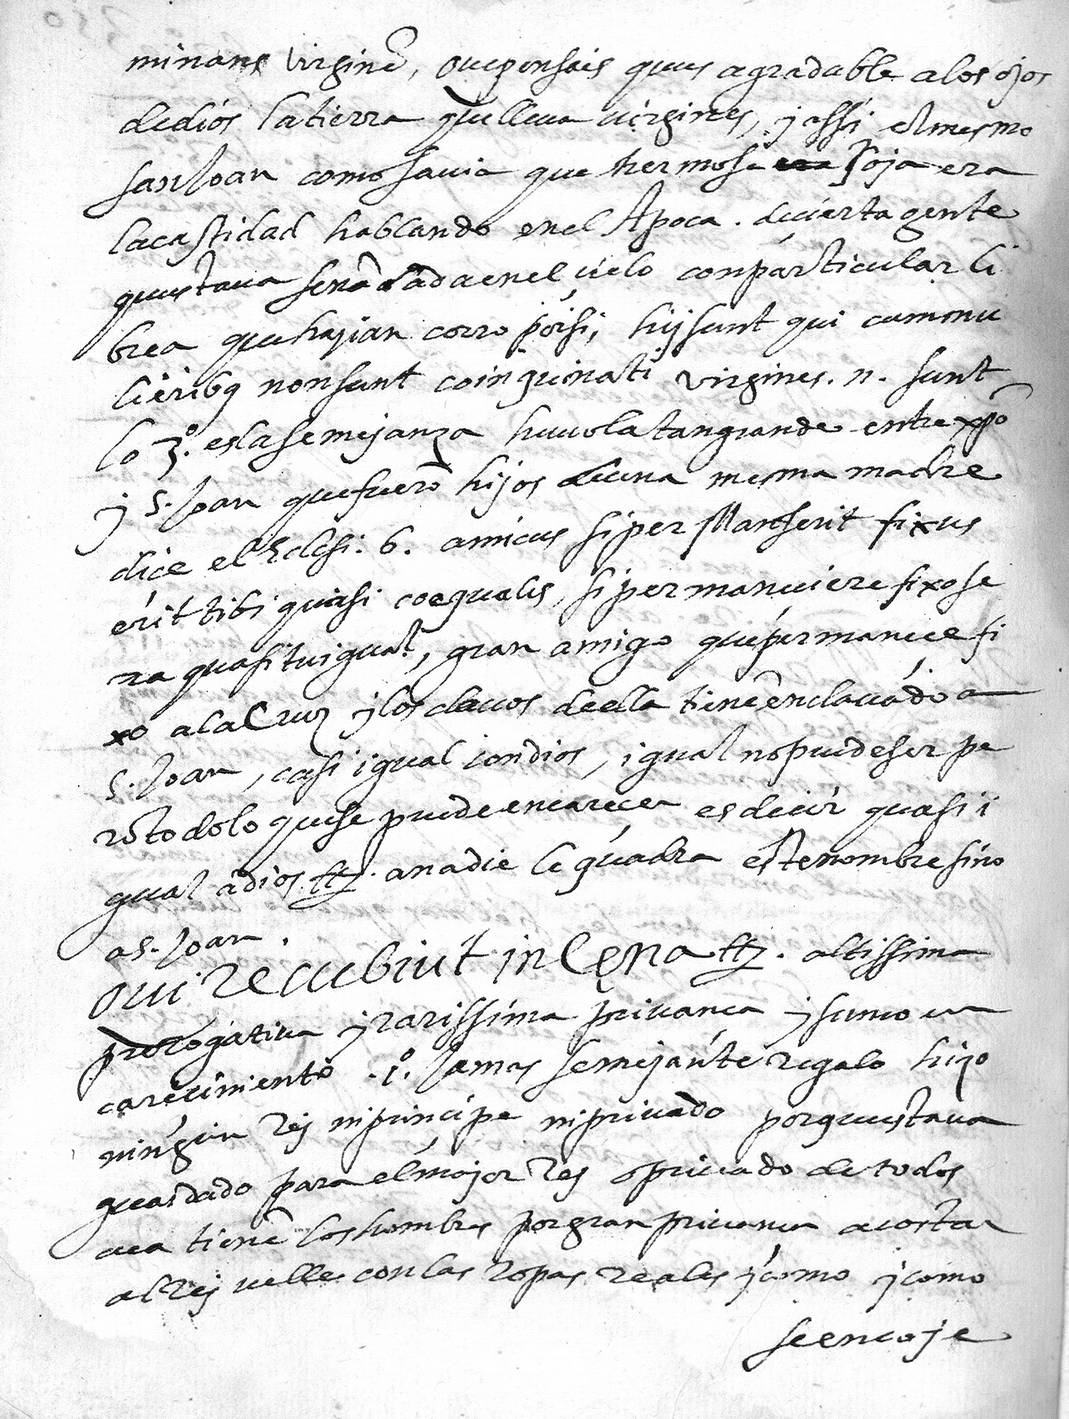 minans virginẽ, que pensais ques agradable a los ojos
de dios la tierra que lleua uirgines, y assi el mesmo
san Joan como sauia que hermosa joja era
la castidad hablando en el Apoca. de cierta gente
questaua senãlada en el cielo con particular li
brea que hazian corro pòr si, hij sunt qui cum mu
lieribꝫ non sunt coinquinati virgines. n. sunt
lo 3.º es la semejanza huuola tan grande entre xp̃o
y S. Joan que fuerõ hijos de una mesma madre
dice el Eclesi. 6. amicus si per Manserit fixus
erit tibi quasi coequalis, si permaneciere fixo se
ra quasi tu igual, gran amigo que permanece fi
xo a la Cruz y los clauos de ella tienẽ enclauado a
S. Joan, casi igual con dios, igual no puede ser pe
ro todo lo que se puede encarecer es decir quasi i
gual a dios. &. a nadie le quadra este nombre sino
a S. Joan.
Qui recubuit in Cena &. altissima
prerogatiua y rarissima priuança y sumo en
carecimiento .1.º Jamas semejante regalo hizo
ningun Rej ni principe ni priuado porquestaua
guardado para el mejor Rej o priuado de todos
aca tienẽ los hombres por gran priuança acostar
al Rej uelle con las ropas reales y como y como
se encoje